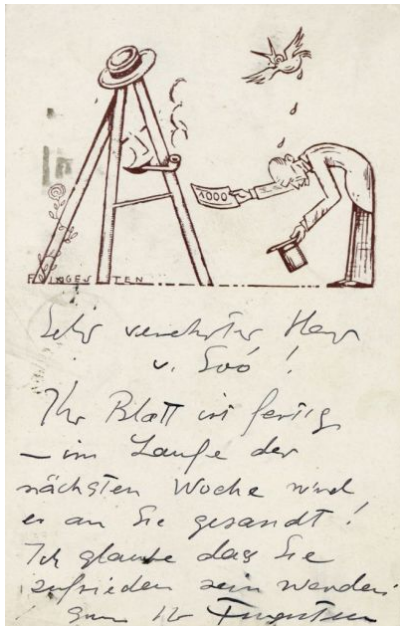 1000
FINGESTEN
Sehr verehrter Herr
v. Soó!
Ihr Blatt ist fertig
– im Laufe der
nächsten Woche wird
es an Sie gesandt!
Ich glaube dass Sie
zufrieden sein werden!
Ihr Fingesten